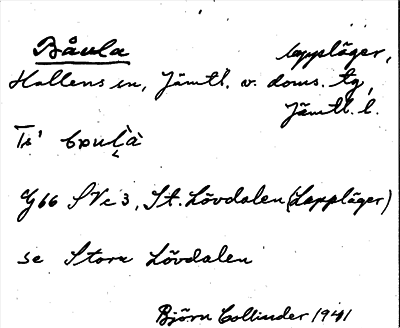 Båula lappläger,
Hallens sn, Jämtl. v. doms. tg,
Jämtl. l.
G66 SVc3, St. Lövdalen (Lappläger)
se Stora Lövdalen
Björn Collinder 1941